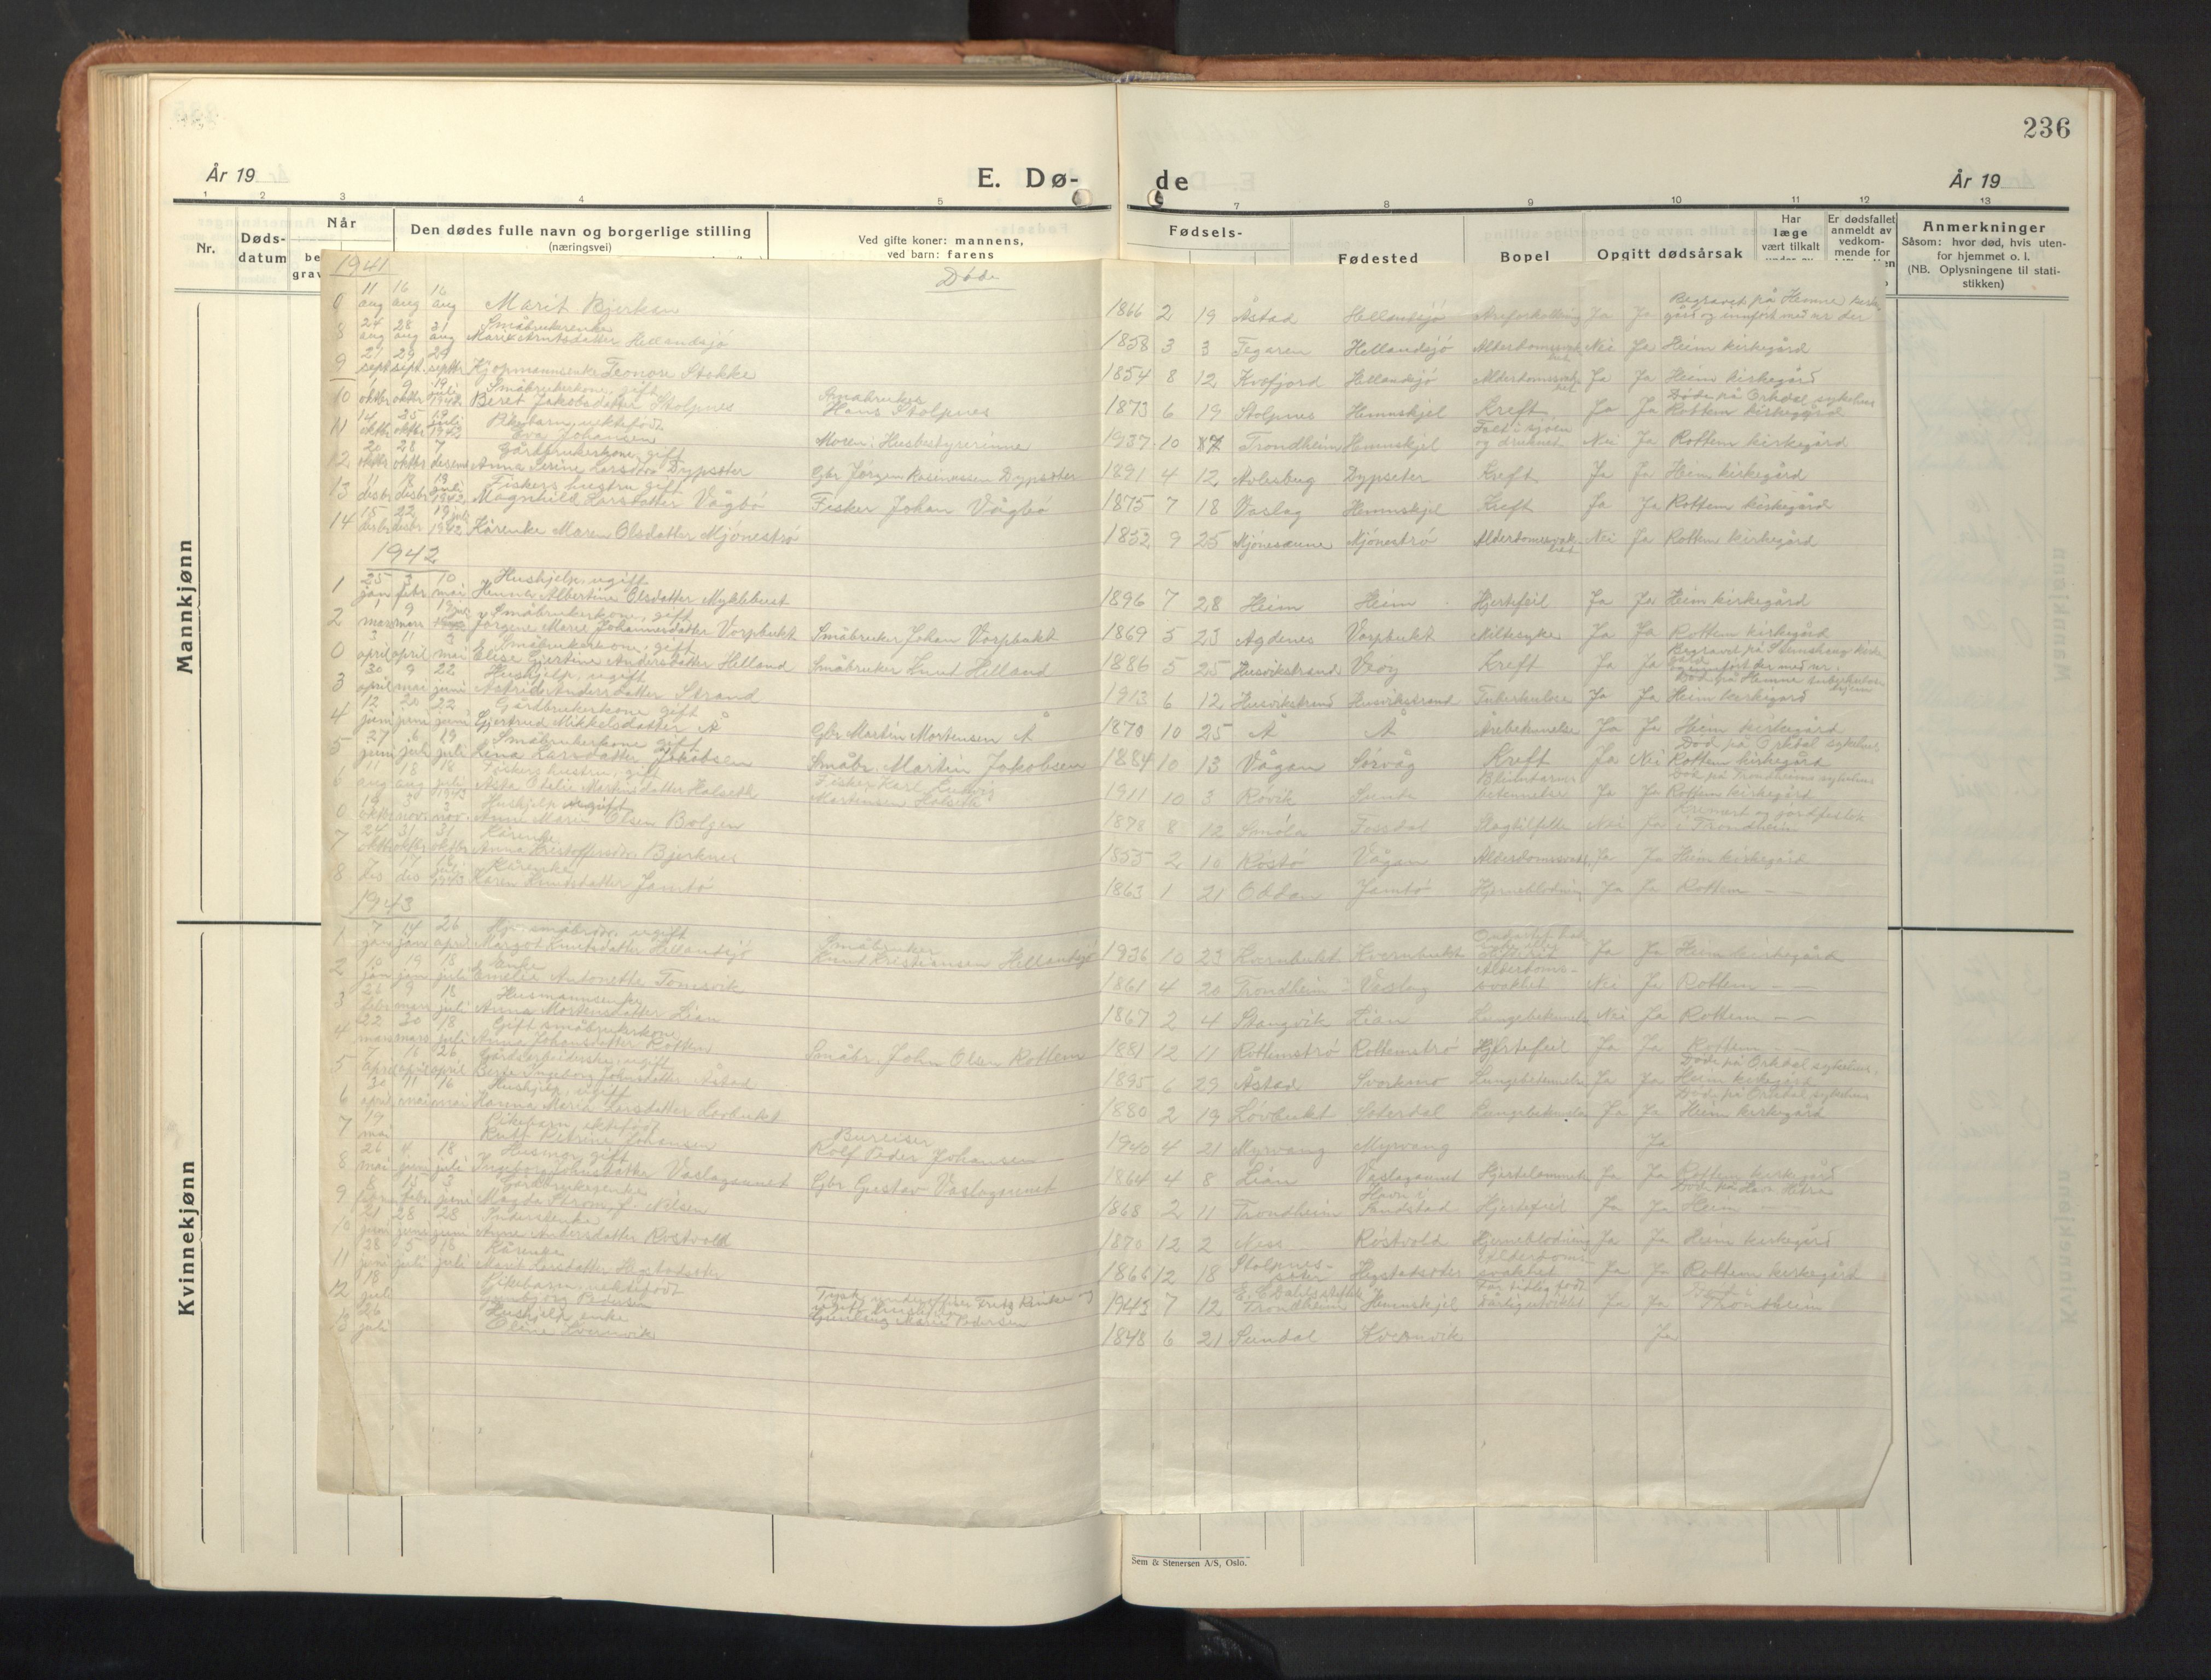 236
År 19
E. Dø-
de
År 19
1 2 3 4 5 7 8 9 10 11 12 13
Nr.
Døds-
datum
Når
be
grav
Den dødes fulle navn og borgerlige stilling
(næringsvei)
Ved gifte koner: mannens,
ved barn: farens
Fødsels-
Fødested
Bopel
Opgitt dødsårsak
Har
læge
vært tilkalt
Er dødsfallet
anmeldt av
vedkom-
mende for
Anmerkninger
Såsom: hvor død, hvis uten-
for hjemmet o. l.
(NB. Oplysningene til stati-
stikken)
Mannkjønn
Kvinnekjønn
1941
Døde
0 11 aug 16 aug 16 aug Marit Bjerksen 1866 2 19 Åstad Hellandsjö Ja Ja Begravet på Hemne kirke-
gård og innfört med nr der
8 24 aug 28 aug 31 aug Småbrukerenke
Marit Arntsdatter Hellandsjö 1858 3 3 Tegaren Hellandsjö Alderdomssvakhet Nei Ja Heim kirkegård
9 21 sept 29 sept. 29 septbr Kjøpmannsenke Leonore Stokke 1854 8 12 Kvefjord Hellandsjö Alderdomssvakhet Ja Ja Heim kirkegård
10 1 oktbr 9 oktbr 19 juli 1942 Småbrukerkone, gift
Beret Jakobsdatter Stolpnes Småbruker
Hans Stolpnes 1873 6 19 Stolpnes Hemnskjel Kreft Ja Ja Döde på Orkdal sykehus
Rottem kirkegård
11 14 oktbr 25 oktbr 19 juli 1942 Pikebarn, uektefödt
Eva Johansen Moren: Husbestyrerinne 1937 10 7 Trondheim Hemnskjel Falt i sjøen
og druknet Nei Ja Rottem kirkegård
12 20 oktbr 28 oktbr 7 Gårdbrukerkone, gift
Anna Serine Larsdtr Dypseter Gbr Jørgen Rasmussen Dypseter 1891 4 12 Dypseter Kreft Ja Ja Heim kirkegård
13 11 desbr 18 desbr 19 juli 1942 Fiskers hustru gift
Magnhild Larsdatter Vågbö Fisker Johan Vågbö 1875 7 18 Vaslag Hemnskjel Kreft Ja Ja Rottem kirkegård
14 15 desbr 22 desbr 19 juli 1942 Kårenke Maren Olsdatter Mjöneströ 1852 9 25 Mjönesaune Mjöneströ Alderdomssvakhet Nei Ja Rottem kirkegård
1942
1 25 jan 3 febr 10 mai Hushjelp, ugift
Albertine Olsdatter Myklebust 1896 7 28 Heim Heim Hjertefeil Ja Ja Heim kirkegård
2 1 mars 9 mars 19 juli Småbrukerkone, gift
Jörgene Marie Johannesdatter Vorpbukt Småbruker Johan Vorpbukt 1869 5 23 Agdenes Vorpbukt Miltesyke Ja Ja Rottem kirkegård
0 3 april 11 april 2 mai Småbrukerkone, gift
Elise Gjertine Andersdatter Helland Småbruker Knut Helland 1886 5 25 Husvikstrand Kreft Ja Ja
3 30 april 9 mai 22 juni Hushjelp, ugift
Astrid Andersdatter Strand 1913 6 12 Husvikstrand Husvikstrand Tuberkulose Ja Ja Död på Hemne tuberkulosehjem
Heim kirkegård
4 12 juni 20 juni 22 juni Gårdbrukerkone gift
Gjertrud Mikkelsdatter Å Gbr Martin Mortensen Å 1870 10 25 Å Å Årebetennelse Ja Ja Heim kirkegård
5 27 juni 6 juli 19 juli Småbrukerkone gift
Lina Larsdatter Jakobsen Småbr. Martin Jakobsen 1884 10 13 Vågan Sörvåg Kreft Ja Nei Död på Orkdal sykehus
Rottem kirkegård
6 11 aug 18 aug 18 juli 1943 Fiskers hustru, gift
Asta Otelie Martinsdatter Halseth Fisker Karl Ludvig
Martensen Halseth 1911 10 3 Rövik Blindtarms-
betennelse Ja Ja Död på Trondheims sykehus
Rottem kirkegård
0 19 oktbr 3 nov 3 nov. Hushjelp ugift
Anne Marie Olsen Bolgen 1878 8 12 Smöla Slagtilfelle Nei Ja Kremert og jordfestet
i Trondheim
7 24 oktbr 31 oktbr 31 oktbr Kårenke
Anna Kristoffersdtr Bjerknes 1855 2 10 Röstö Vågan Alderdomssvakh. Ja Ja Heim kirkegård
8 7 des 17 des 18 juli 1943 Kårenke
Karen Knutsdatter Jamtö 1863 1 21 Oddan Jamtö Hjerneblödning Ja Ja Rottem — —
1943
1 7 jan 14 jan 26 april ugift
Margot Knutsdatter Hellandsjö Småbruker
Knut Kristiansen Hellandsjö 1936 10 23 Kvernbukt Kvernbukt Ja Ja Heim kirkegård
2 10 jan 19 jan 18 juli Enke
Emelie Antonette Tomsvik 1861 4 20 Trondheim Vaslag Alderdoms-
svakhet Nei Ja Rottem — —
3 26 febr 9 mars 18 juli Husmannsenke
Anna Mortensdatter Lian 1867 2 4 Stangvik Lian Lungebetennelse Nei Ja Rottem — —
4 22 mars 30 mars 18 juli Gift småbrukerkone
Anna Johansdatter Rottem Småbr. John Olsen Rottem 1881 12 11 Rottemströ Rottemströ Hjertefeil Ja Ja Rottem — —
5 7 april 16 april 26 april Gårdsarbeiderske, ugift
Berit Ingeborg Johnsdatter Åstad 1895 6 29 Åstad Svorkmo Lungebetennelse Ja Ja Döde på Orkdal sykehus.
Heim kirkegård
6 30 april 11 mai 16 mai Hushjelp, ugift
Hanna Marie Larsdatter Lovbukt 1880 2 19 Lövbukt Seterdal Lungebetennelse Ja Ja Död på Orkdal sykehus
Heim kirkegård
7 19 mai Pikebarn, ektefödt
Ruth Petrine Johansen Bureiser
Rolf Peder Johansen 1940 4 21 Myrvang Myrvang Ja
8 26 mai 4 juni 18 juli Husmor, gift
Ingeborg Johnsdatter Vaslagsunet Gbr Gustav Vaslagsunet 1864 4 8 Lian Vaslagsunet Hjertelammelse Ja Ja Rottem kirkegård
9 8 15 3 juni Gårdbrukerenke
Magda Ström, f. Nilsen 1868 2 11 Trondheim Havn i
Sandstad Hjertefeil Ja Ja
Heim — —
10 21 juni 28 juni 28 juni Inderstenke
Anne Andersdatter Röstvold 1870 12 2 Ness Röstvold Hjerneblödning Ja Ja Heim kirkegård
11 28 juni 5 juli 18 juli Kårenke
Marit Larsdatter Hegstadseter 1866 12 18 Stolpnes-
seter Hegstadseter Alderdoms-
svakhet Ja Ja Rottem kirkegård
12 18 juli Pikebarn, uektefödt
Gunbjörg Pedersen Tysk underoffiser Fritz
Gunlaug Marie Pedersen 1943 7 12 E. C. Dahls stiftelse
Trondheim Hemnskjel For tidlig födt
dårlig utviklet Ja Ja
Trondheim
13 26 juli Hushjelp, enke
Eline Kvernvik 1848 6 21 Kvernvik Ja
Sem & Stenersen A/S, Oslo.